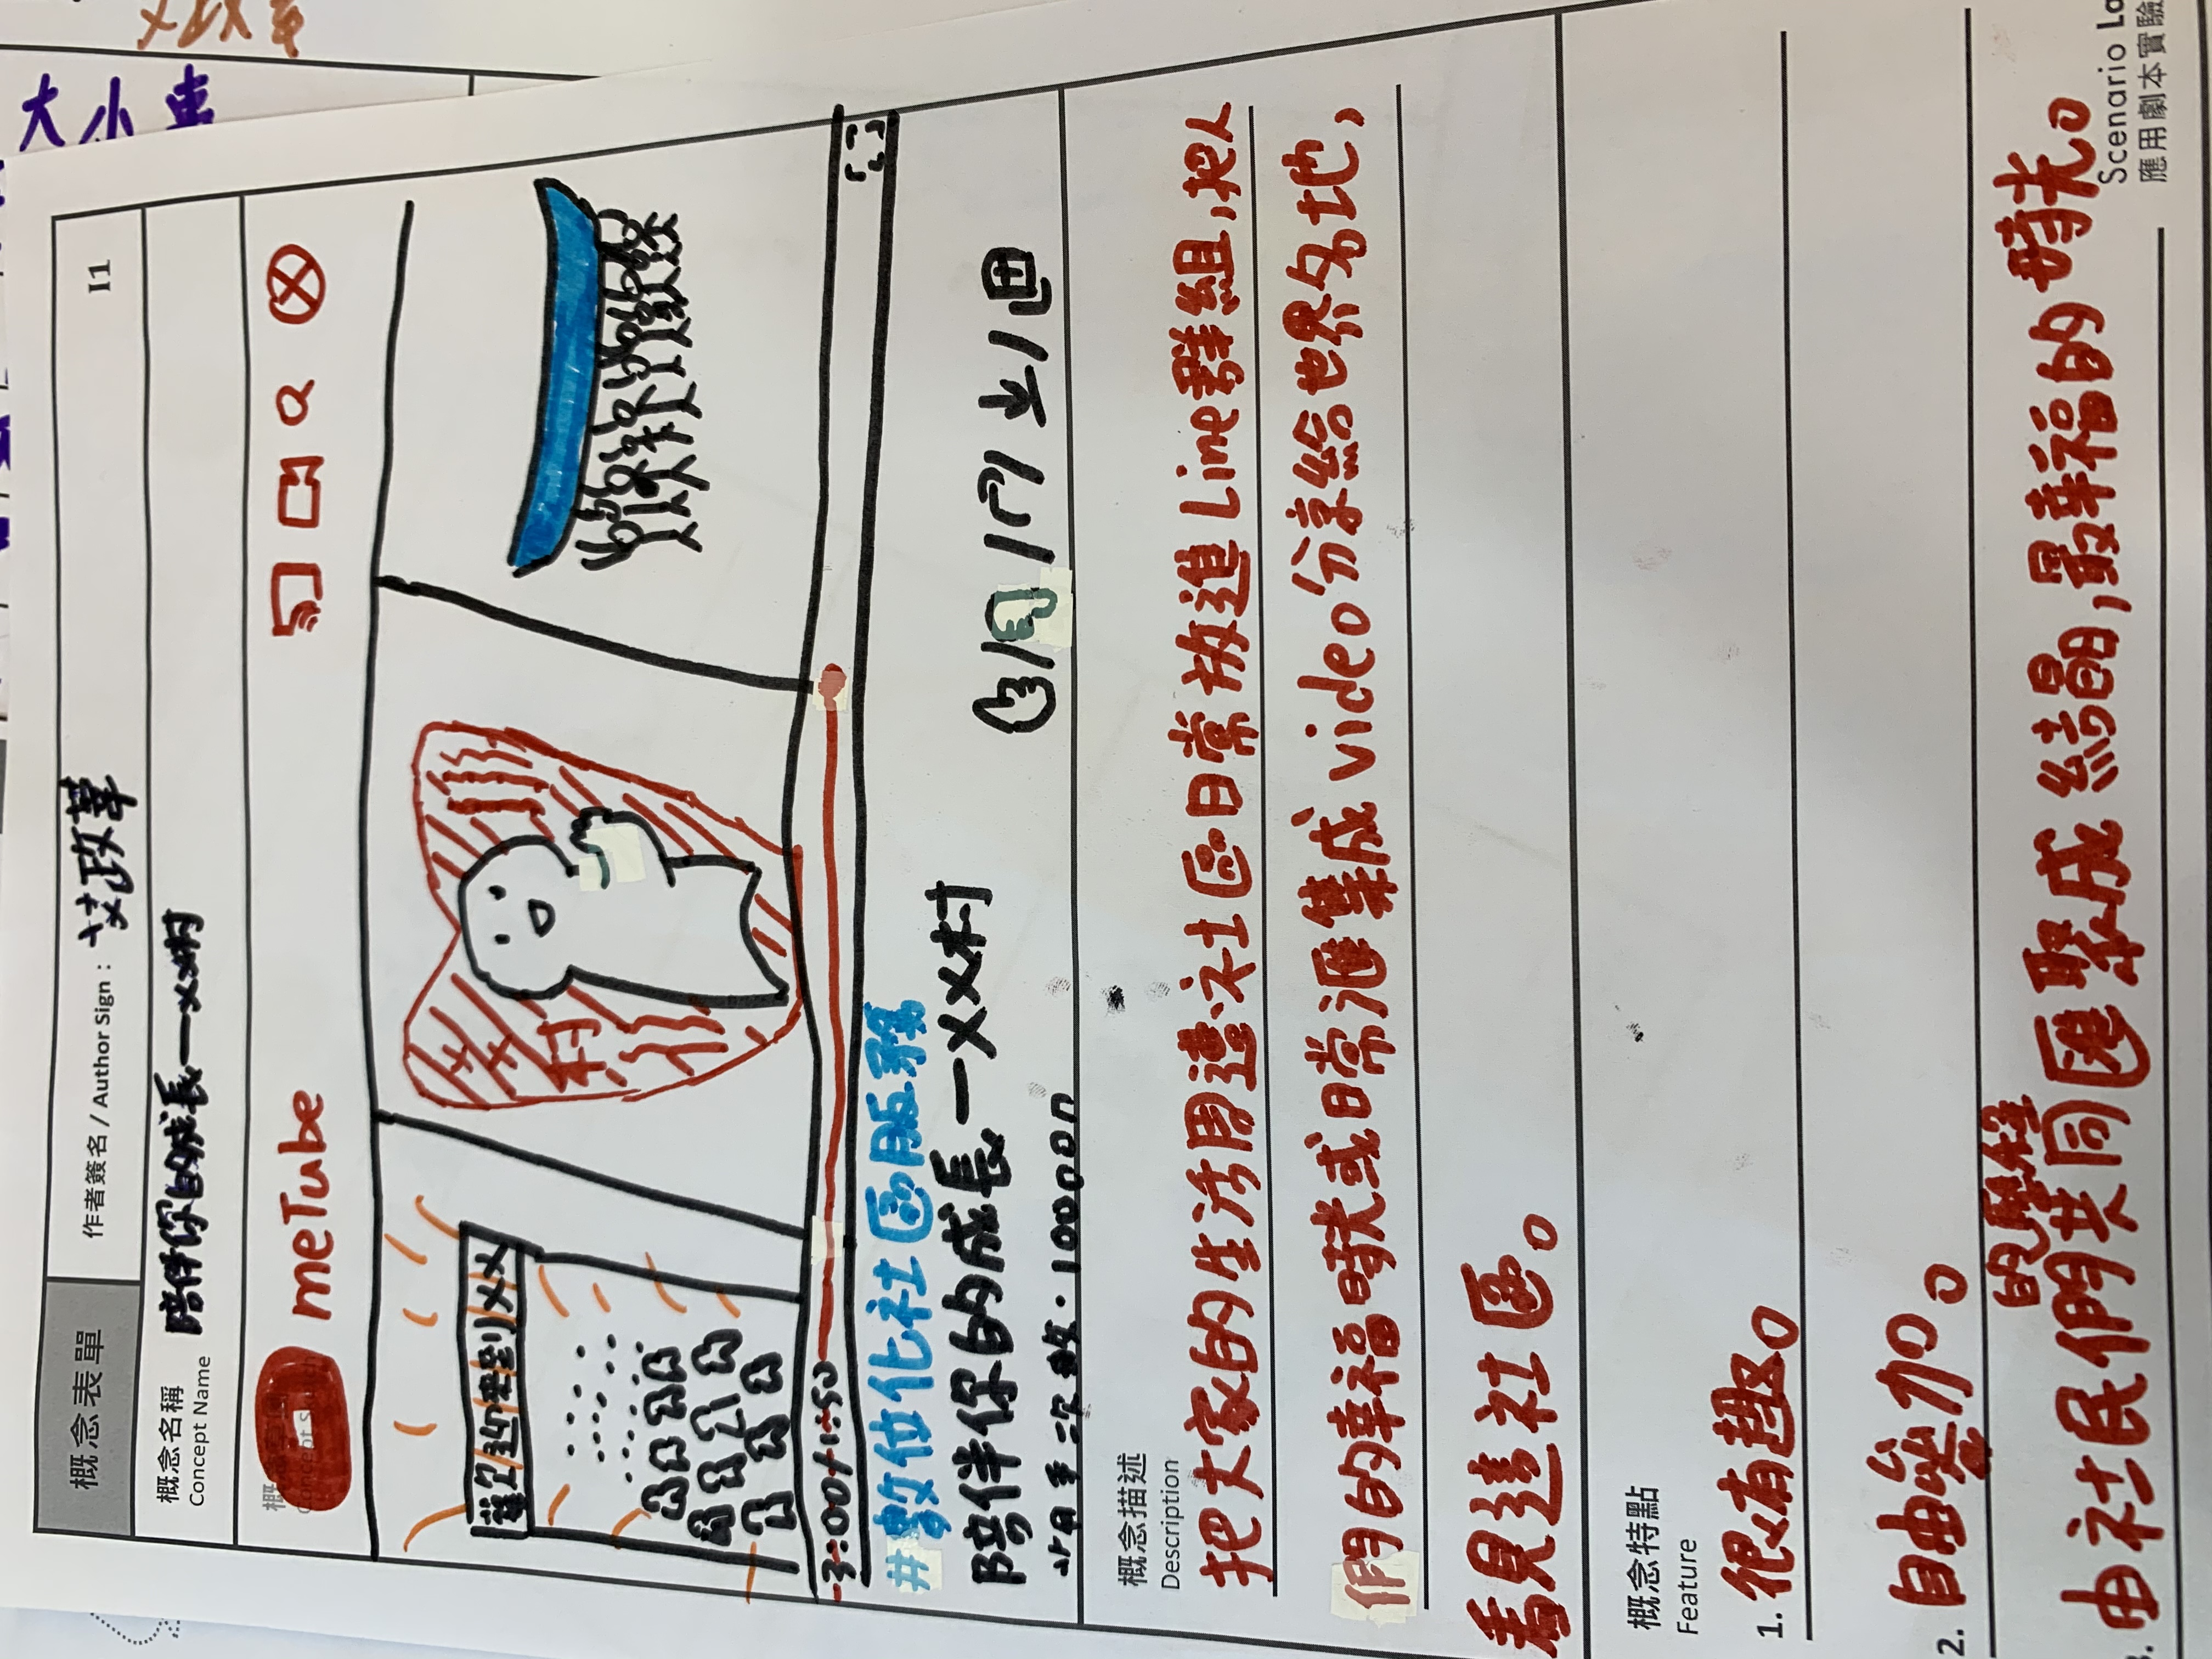 概念表單
作者簽名 / Author Sign : 艾政葦
I1
概念名稱
Concept Name
陪伴你的成長—XX村
概念草圖
Concept Sketch
meTube
歡迎來到XX
XX村
3:00/1:50
#數位化社區服務
陪伴你的成長—XX村
次數·100000
概念描述
Description
把大家的生活周遭、社區日常放進Line群組,把人
們的幸福時光或日常滙集成video分享給世界各地,
看見這社區。
概念特點
Feature
1. 很有趣。
2. 自由參加。
的歷程
由社民們共同匯聚成結晶,最幸福的時光。
Scenario La
應用劇本實驗
大小事